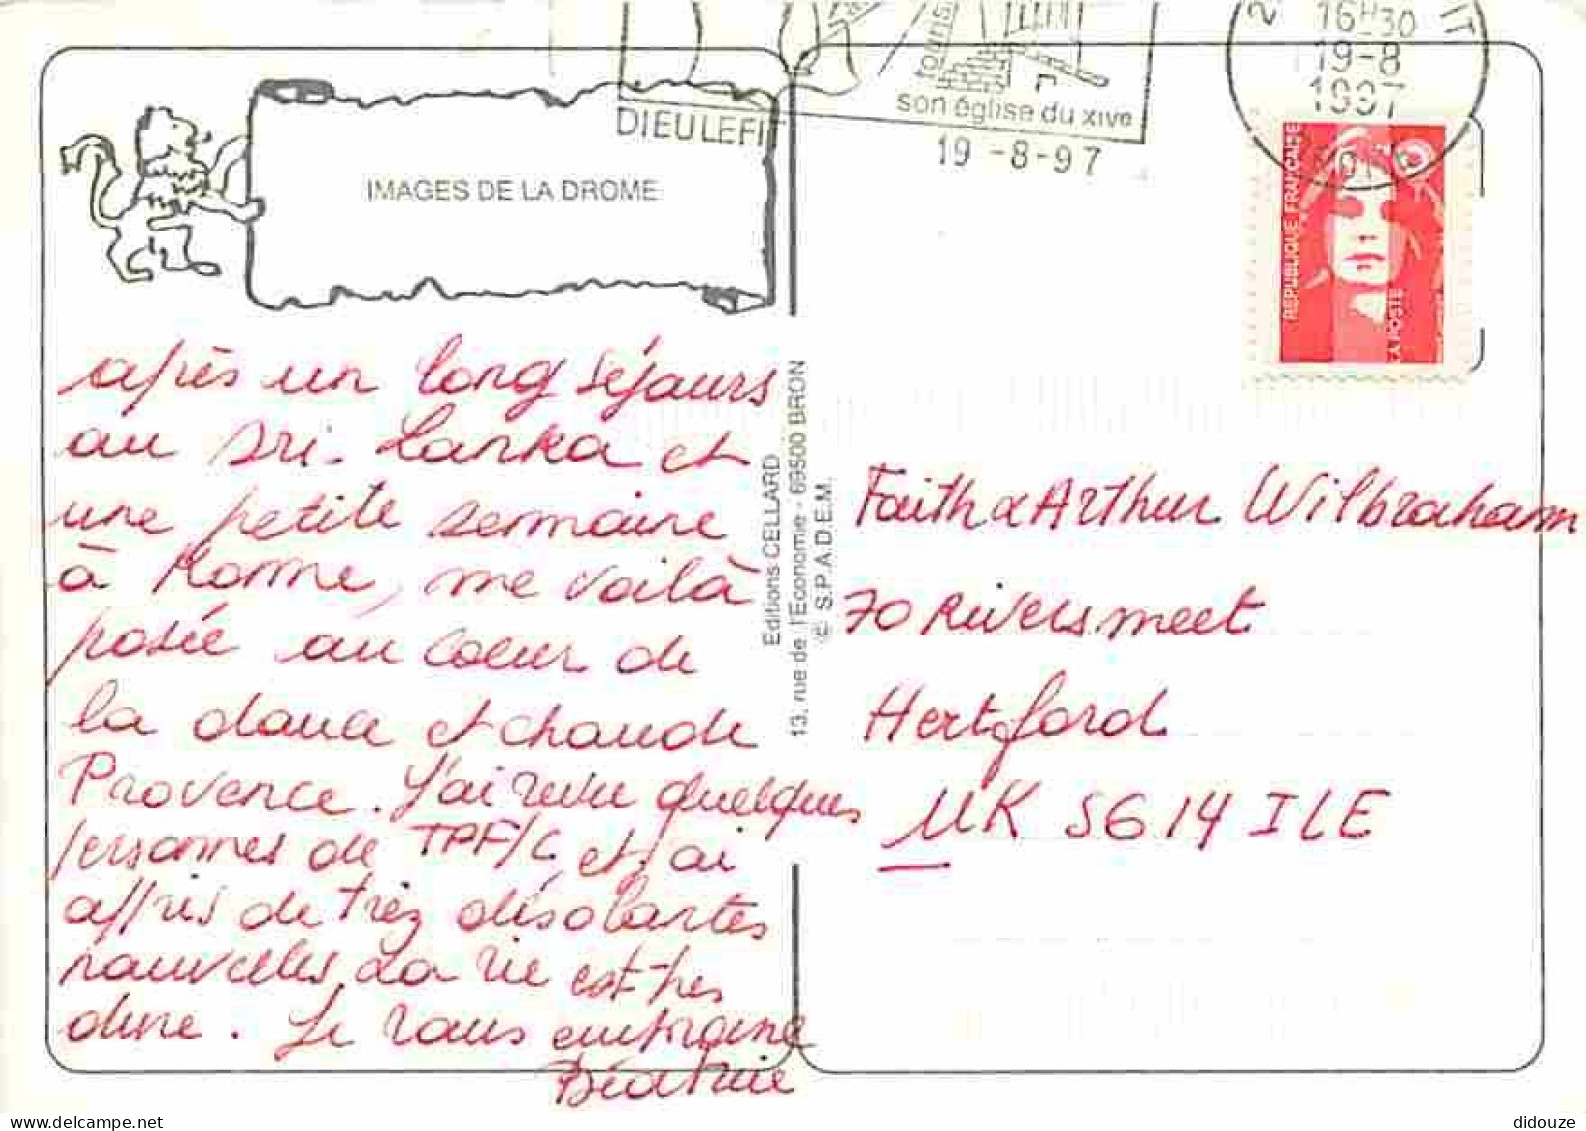 touris
son église du XIVe
DIEULEFIT
19 -8-97
16H30
19-8
1997
REPUBLIQUE FRANÇAISE
LA POSTE
IMAGES DE LA DROME
après un long séjours
au Sri-Lanka et
une petite semaine
à Rome, me voilà
posée au coeur de
la douce et chaude
Provence. J'ai revu quelques
personnes de TPF/C, et j'ai
appris de trèz désolantes
nouvelles. La vie est très
dure. Je vous embrasse
Béatrice
Editions CELLARD
13, rue de l'Economie - 69500 BRON
© S.P.A.D.E.M.
Faith & Arthur Wilbraham
70 Riversmeet
Hertford
UK SG14 ILE
didouze